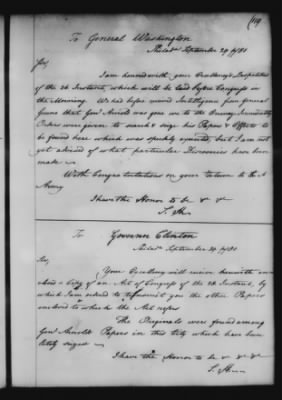 119
To General Washington
Philad.a September 29 1780
Sir,
I am honored with your Excellency's Despatches
of the 26 Instant, which will be laid before Congress in
the Morning. We had before received Intelligence from General
Greene that Gen.l Arnold was gone over to the Enemy. Immediately
Orders were given to search & seize his Papers & Effects to
be found here which was speedily executed, but I am not
yet advised of what particular Discoveries have been
made.
With Congratulations on your return to the
Army
I have the Honor to be & &
S. H.
To Governor Clinton
Philad.a September 29 1780
Sir,
Your Excellency will receive herewith
a Copy of an Act of Congress of the 28 Instant, by
which I am asked to transmit you the other Papers
enclosed to which the Act refers
The Originals were found among
Gen.l Arnolds Papers in this City which have been
lately seized
I have the Honor to be & & &
S. H.